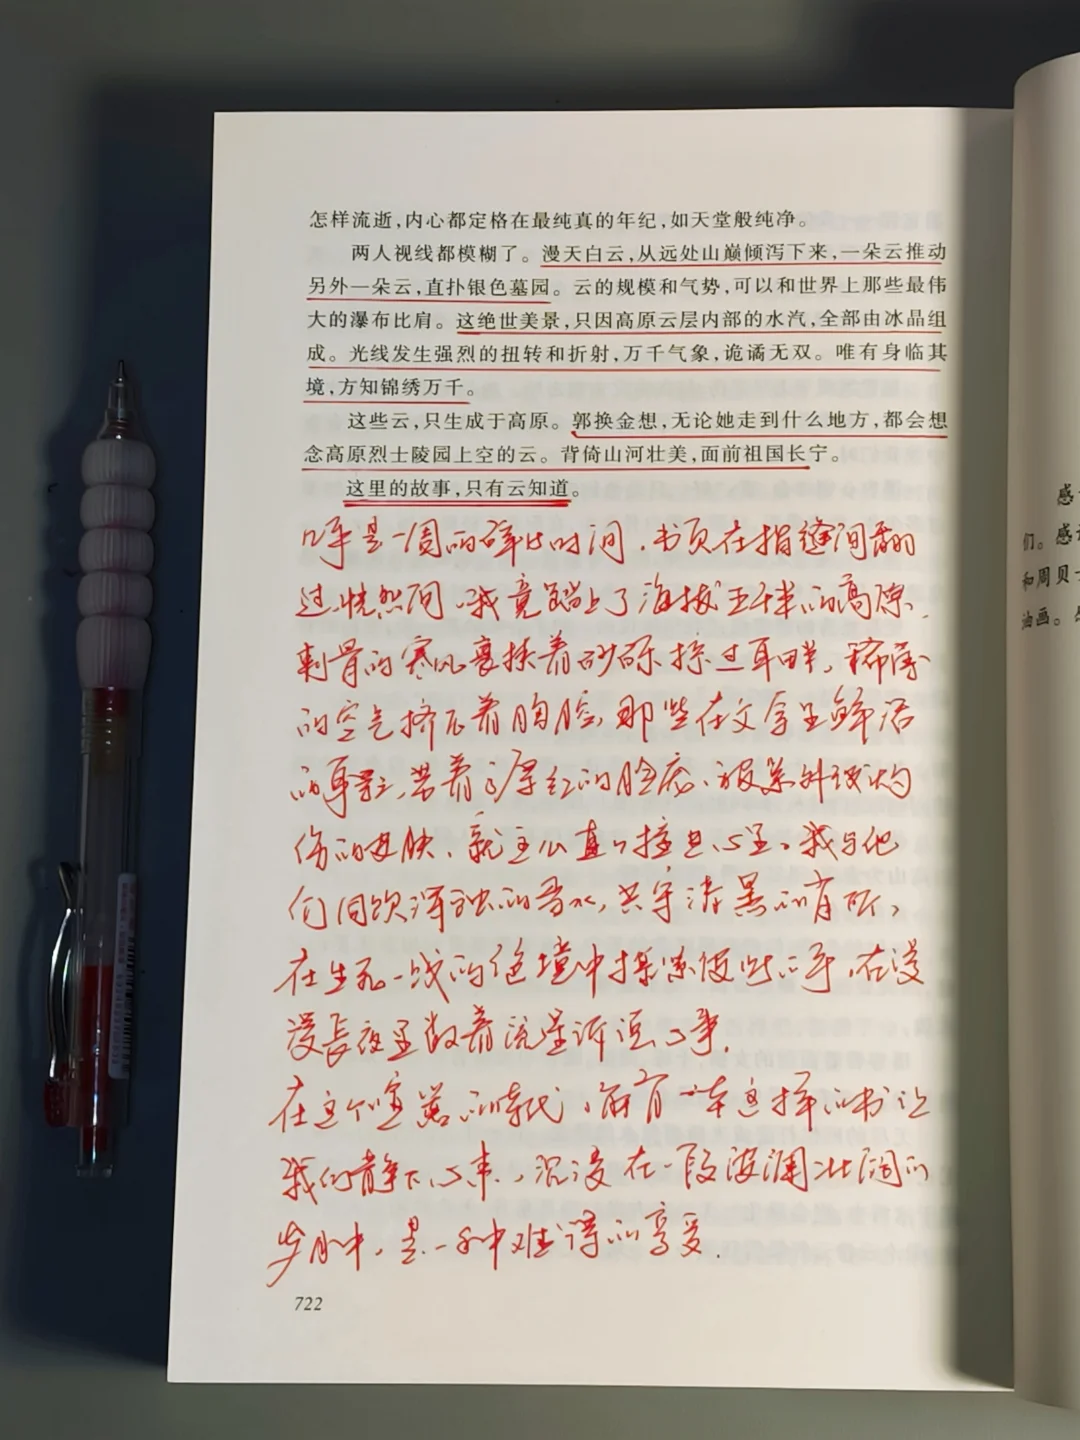 怎样流逝，内心都定格在最纯真的年纪，如天堂般纯净。
两人视线都模糊了。漫天白云，从远处山巅倾泻下来，一朵云推动
另外一朵云，直扑银色墓园。云的规模和气势，可以和世界上那些最伟
大的瀑布比肩。这绝世美景，只因高原云层内部的水汽，全部由冰晶组
成。光线发生强烈的扭转和折射，万千气象，诡谲无双。唯有身临其
境，方知锦绣万千。
这些云，只生成于高原。郭换金想，无论她走到什么地方，都会想
念高原烈士陵园上空的云。背倚山河壮美，面前祖国长宁。
这里的故事，只有云知道。
又是一周的碎片时间，书页在指缝间翻
过，恍然间，我竟踏上了海拔五千米的高原。
刺骨的寒风裹挟着砂砾掠过耳畔，稀薄
的空气挤压着胸腔，那些在文字里鲜活
的身影，带着高原红的脸庞、被紫外线灼
伤的皮肤，就这么直直撞进心里。我与他
们同饮浑浊的雪水，共守漆黑的哨所，
在生死一线的绝境中握紧彼此的手，在漫
漫长夜里数着流星诉说心事。
在这个喧嚣的时代，能有一本这样的书让
我们静下心来，沉浸在一段波澜壮阔的
岁月中，是一种难得的享受。
722
感
们。感
和周贝
油画。